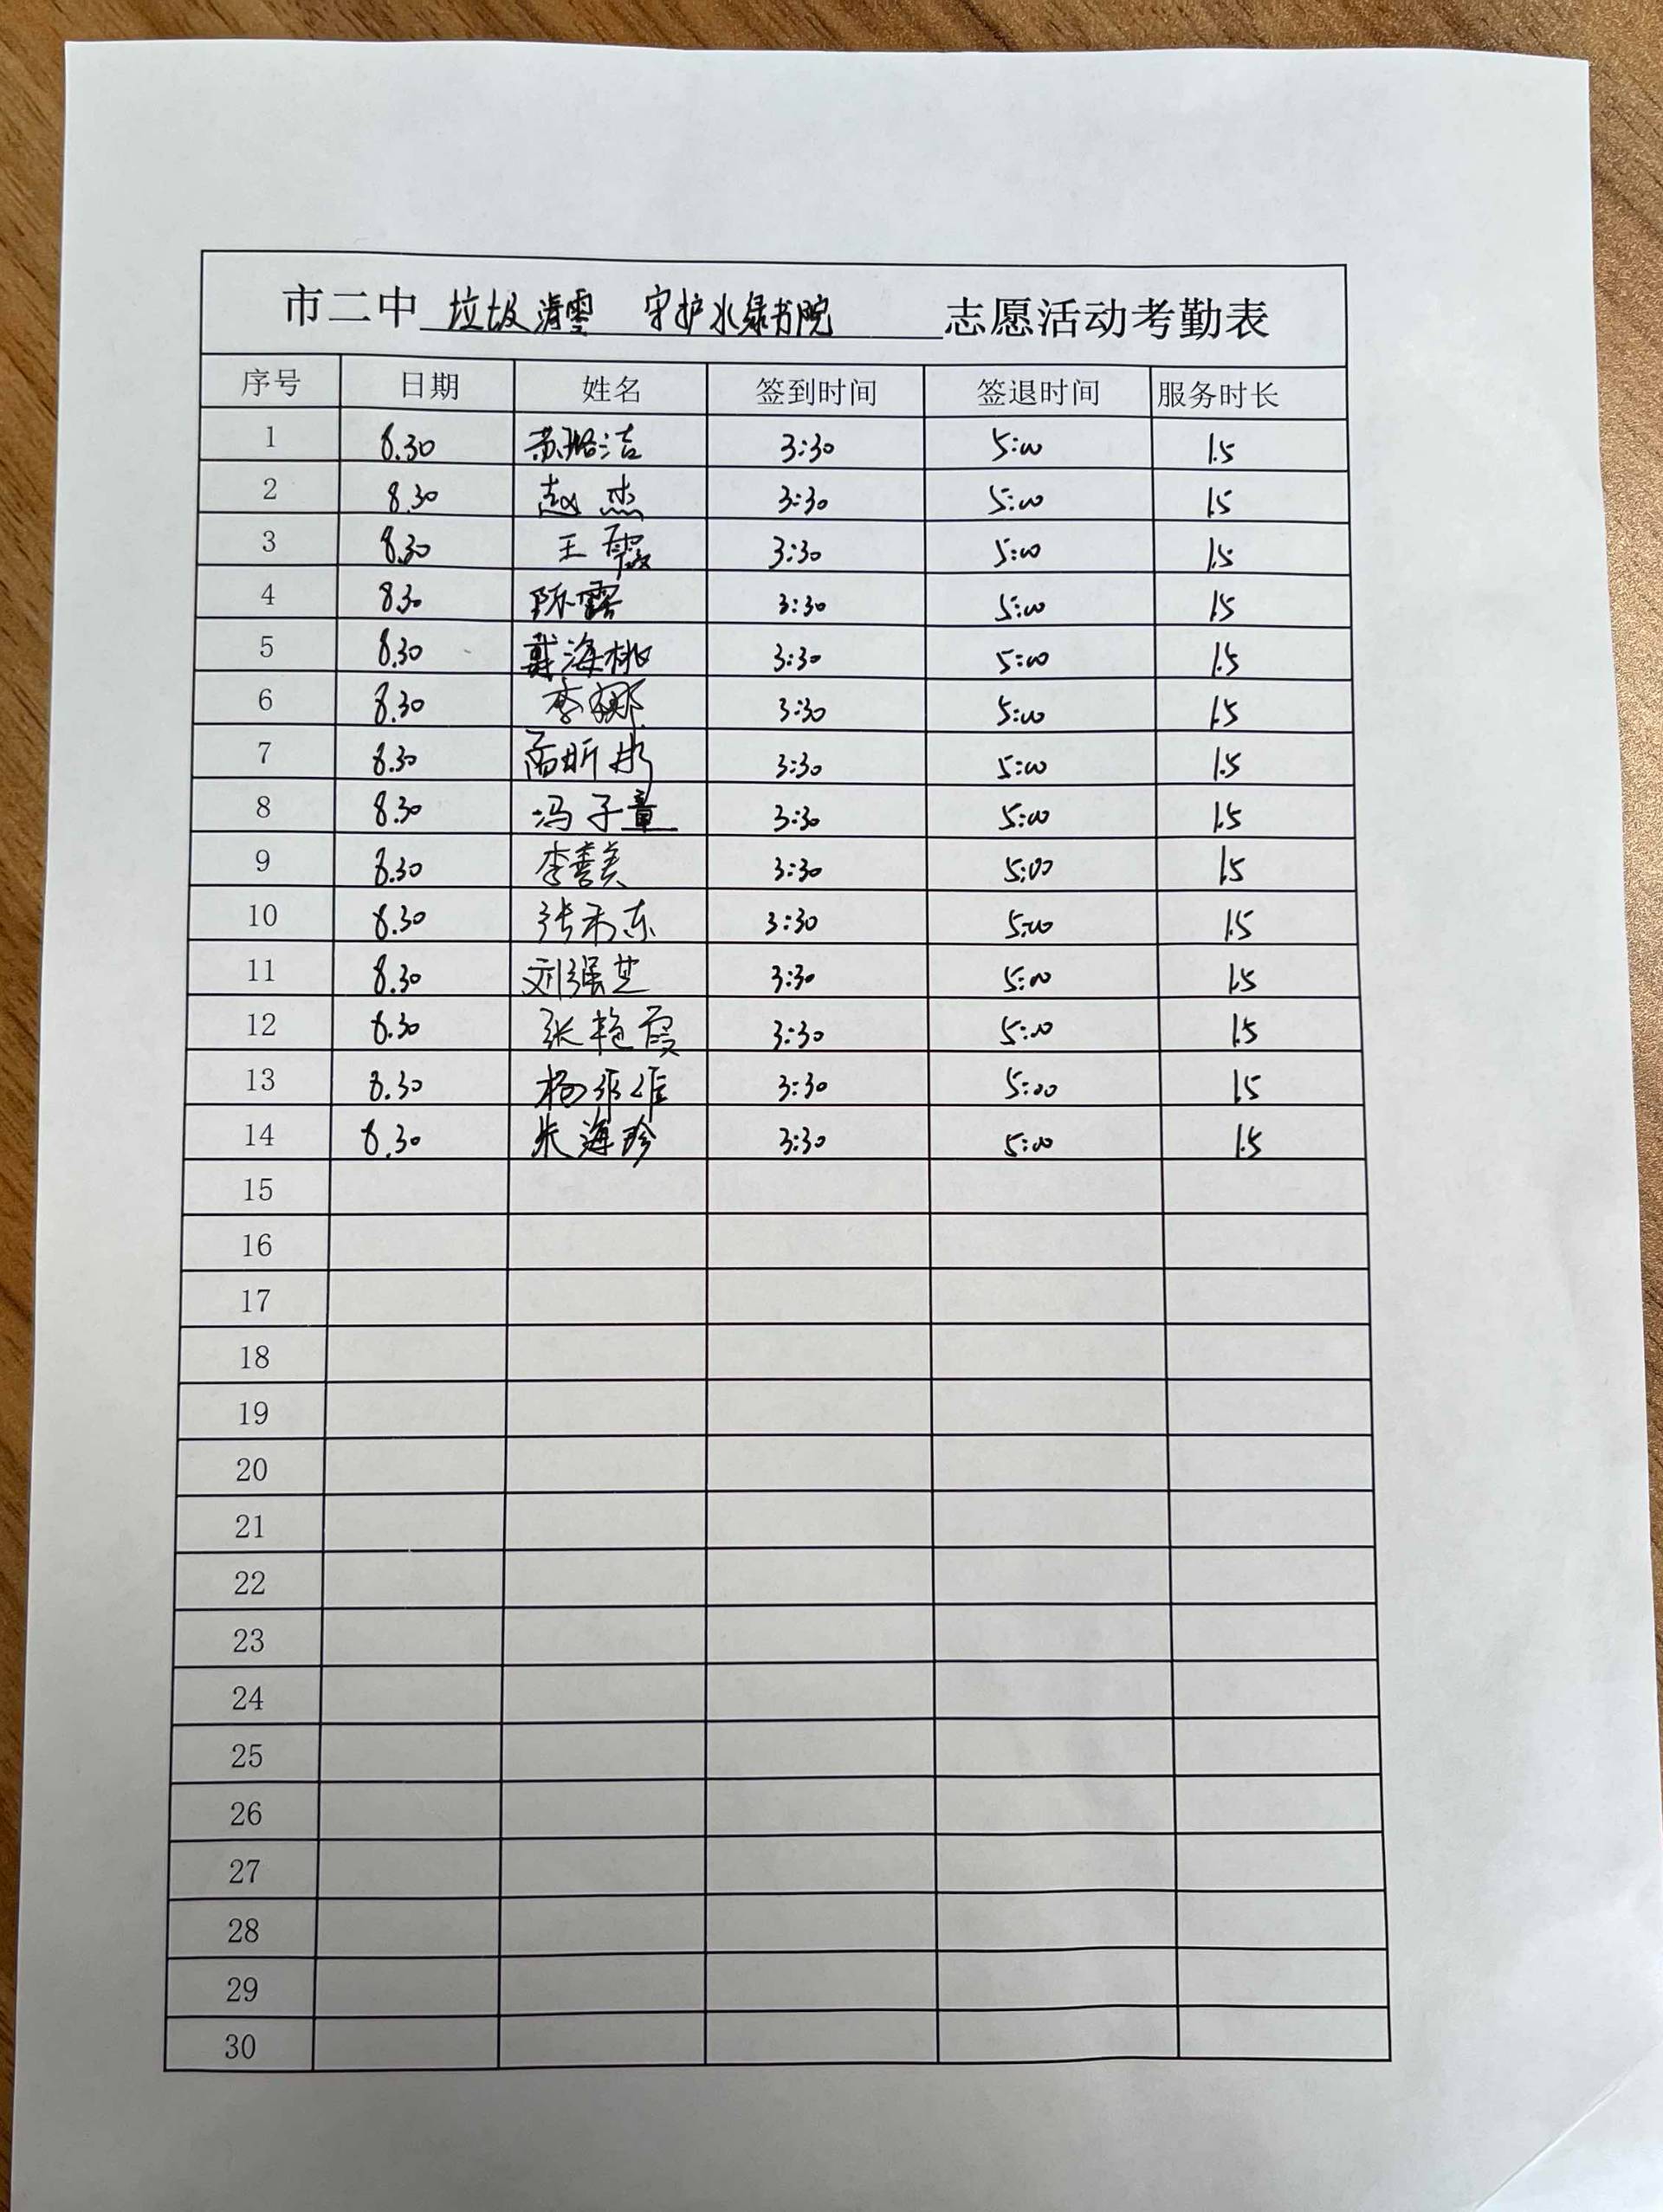 市二中 垃圾清零 守护水绿书院 志愿活动考勤表
序号 日期 姓名 签到时间 签退时间 服务时长
1 8.30 苏璐洁 3:30 5:00 1.5
2 8.30 赵杰 3:30 5:00 1.5
3 8.30 王霞 3:30 5:00 1.5
4 8.30 陈露 3:30 5:00 1.5
5 8.30 戴海桃 3:30 5:00 1.5
6 8.30 李娜 3:30 5:00 1.5
7 8.30 昕彤 3:30 5:00 1.5
8 8.30 冯子童 3:30 5:00 1.5
9 8.30 李喜美 3:30 5:00 1.5
10 8.30 张东 3:30 5:00 1.5
11 8.30 刘强芝 3:30 5:00 1.5
12 8.30 张艳霞 3:30 5:00 1.5
13 8.30 杨 3:30 5:00 1.5
14 8.30 朱海珍 3:30 5:00 1.5
15
16
17
18
19
20
21
22
23
24
25
26
27
28
29
30